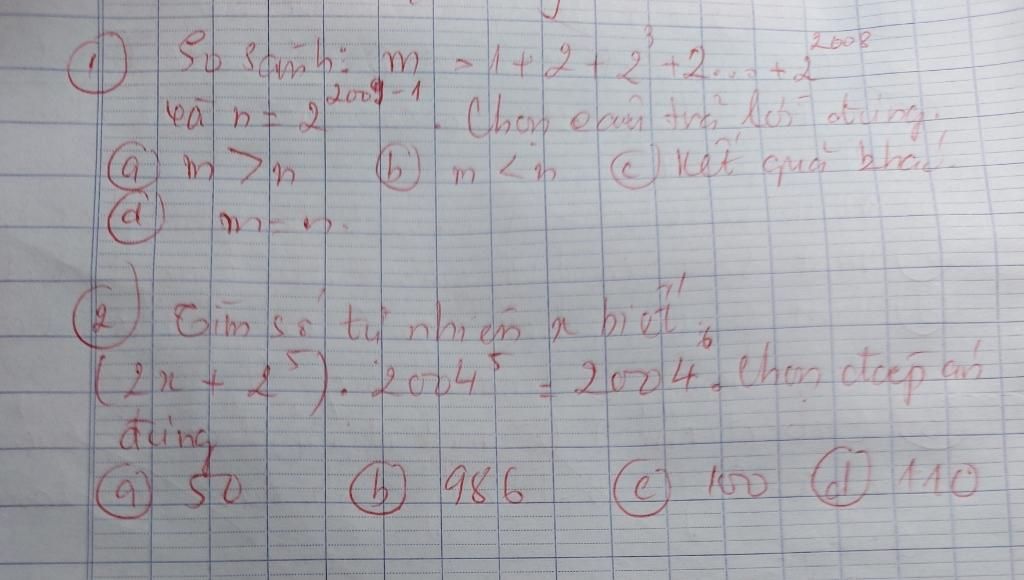 ① So sánh: m = 1 + 2 + 2³ + 2... + 2²⁰⁰⁸
và n = 2²⁰⁰⁹⁻¹. Chọn câu trả lời đúng.
ⓐ m > n ⓑ m < n ⓒ Kết quả khác
ⓓ m = n.
② Tìm số tự nhiên x biết:
(2x + 2⁵) . 2004⁵ = 2004⁶. Chọn đáp án
đúng
ⓐ 50 ⓑ 986 ⓒ 100 ⓓ 110